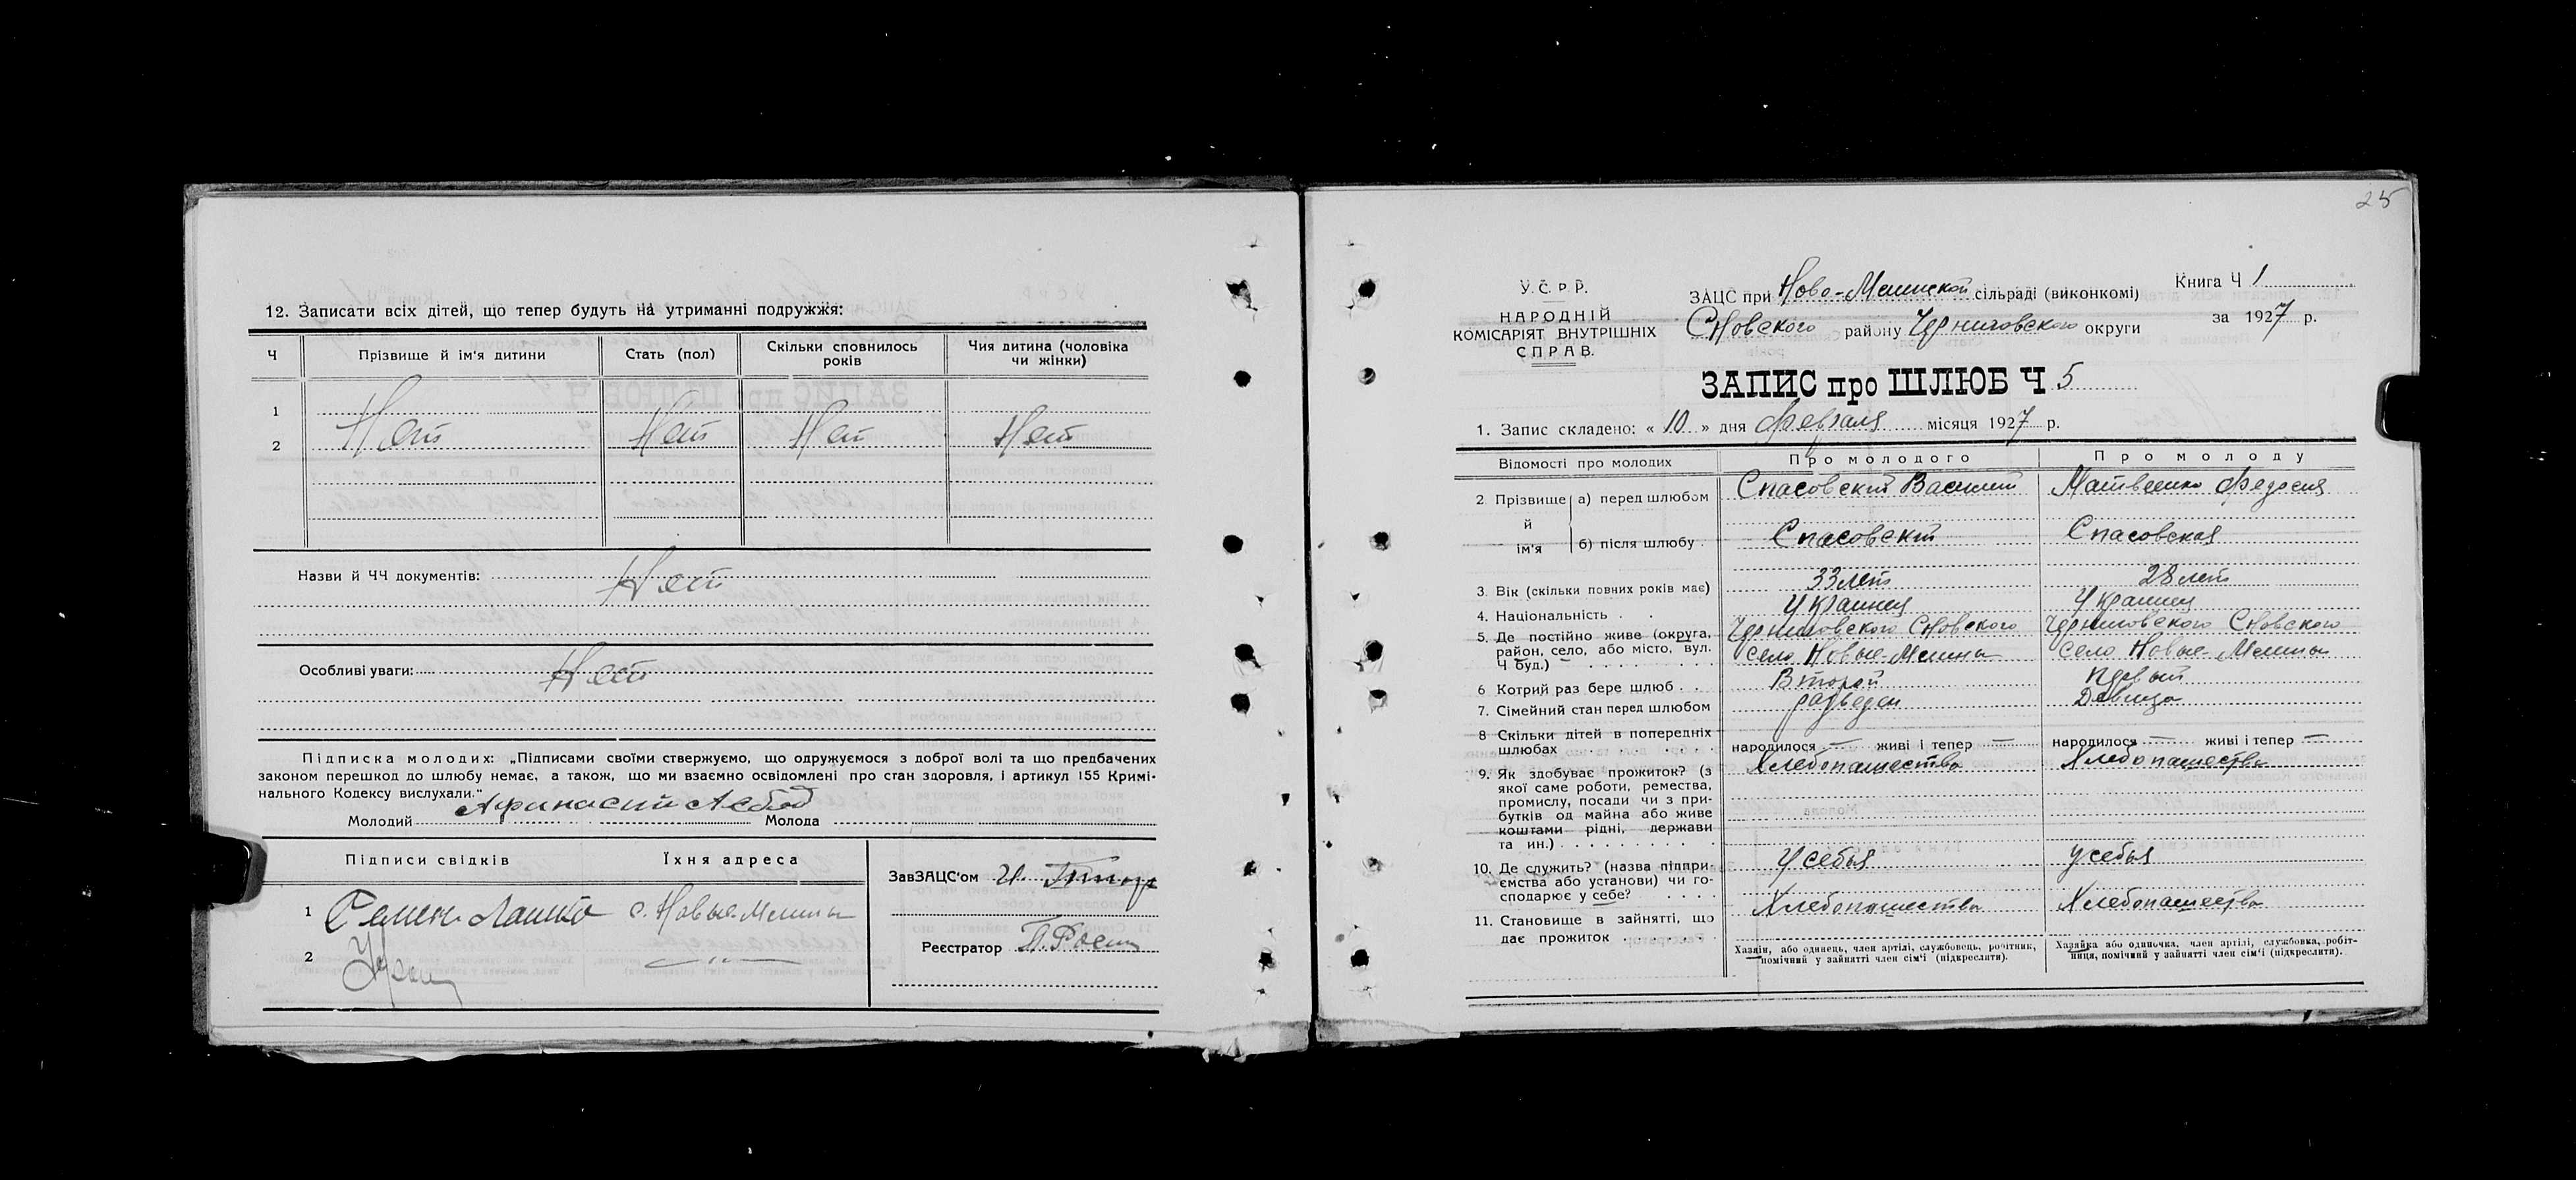 12. Записати всіх дітей, що тепер будуть на утриманні подружжя:
Ч Прізвище й ім'я дитини Стать (пол) Скільки сповнилось років Чия дитина (чоловіка чи жінки)
1
2 Нет Нет Нет Нет
Назви й ЧЧ документів: Нет
Особливі уваги: Нет
Підписка молодих: „Підписами своїми стверджуємо, що одружуємося з доброї волі та що предбачених
законом перешкод до шлюбу немає, а також, що ми взаємно освідомлені про стан здоровля, і артикул 155 Кримі-
нального Кодексу вислухали."
Молодий Афанасий Молода
Підписи свідків Їхня адреса
1 Семен с. Новые-Млины
2 — „ —
ЗавЗАЦС'ом
Реєстратор
25
У.С.Р.Р.
НАРОДНІЙ
КОМІСАРІЯТ ВНУТРІШНІХ
СПРАВ.
ЗАЦС при Ново-Млинской сільраді (виконкомі)
Сновского району Черниговского округи
Книга Ч 1
за 1927 р.
ЗАПИС про ШЛЮБ Ч 5
1. Запис складено: « 10 » дня февраля місяця 1927 р.
Відомості про молодих Про молодого Про молоду
2. Прізвище й ім'я а) перед шлюбом Спасовский Василий Матвеенко Федосия
б) після шлюбу Спасовский Спасовская
3. Вік (скільки повних років має) 33 лет 28 лет
4. Національність Украинец Украинец
5. Де постійно живе (округа, район, село, або місто, вул. Ч буд.) Черниговского Сновского село Новые-Млины Черниговского Сновского село Новые-Млины
6 Котрий раз бере шлюб Второй первый
7. Сімейний стан перед шлюбом разведен Девица
8 Скільки дітей в попередніх шлюбах народилося — живі і тепер — народилося — живі і тепер —
9. Як здобуває прожиток? (з якої саме роботи, ремества, промислу, посади чи з прибутків од майна або живе коштами рідні, держави та ин.) Хлебопашество Хлебопашество
10. Де служить? (назва підприємства або установи) чи господарює у себе? У себья У себья
11. Становище в зайнятті, що дає прожиток Хлебопашество Хлебопашество
Хазяїн, або одинець, член артілі, службовець, робітник, помічний у зайнятті член сім'ї (підкреслити).
Хазяйка або одиночка, член артілі, службовка, робітниця, помічний у зайнятті член сім'ї (підкреслити).